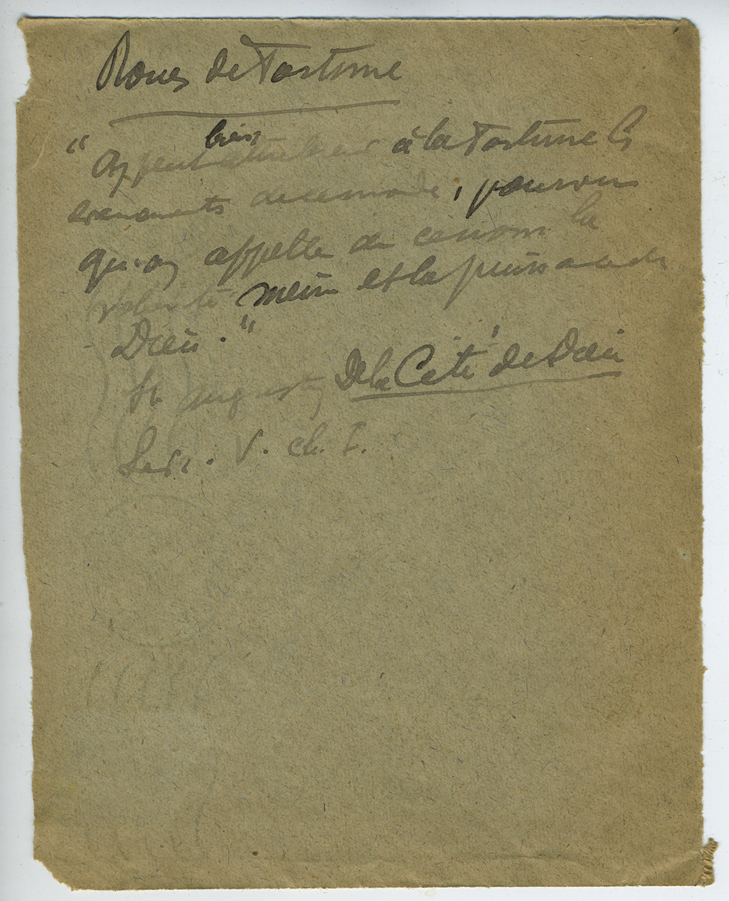 Roues de Fortune
"On peut bien attribuer à la Fortune les
évènements de ce monde, pourvu
qu'on appelle de ce nom la
volonté même et la puissance de
Dieu."
St Augustin De la Cité de Dieu
Livr. V. ch. I.